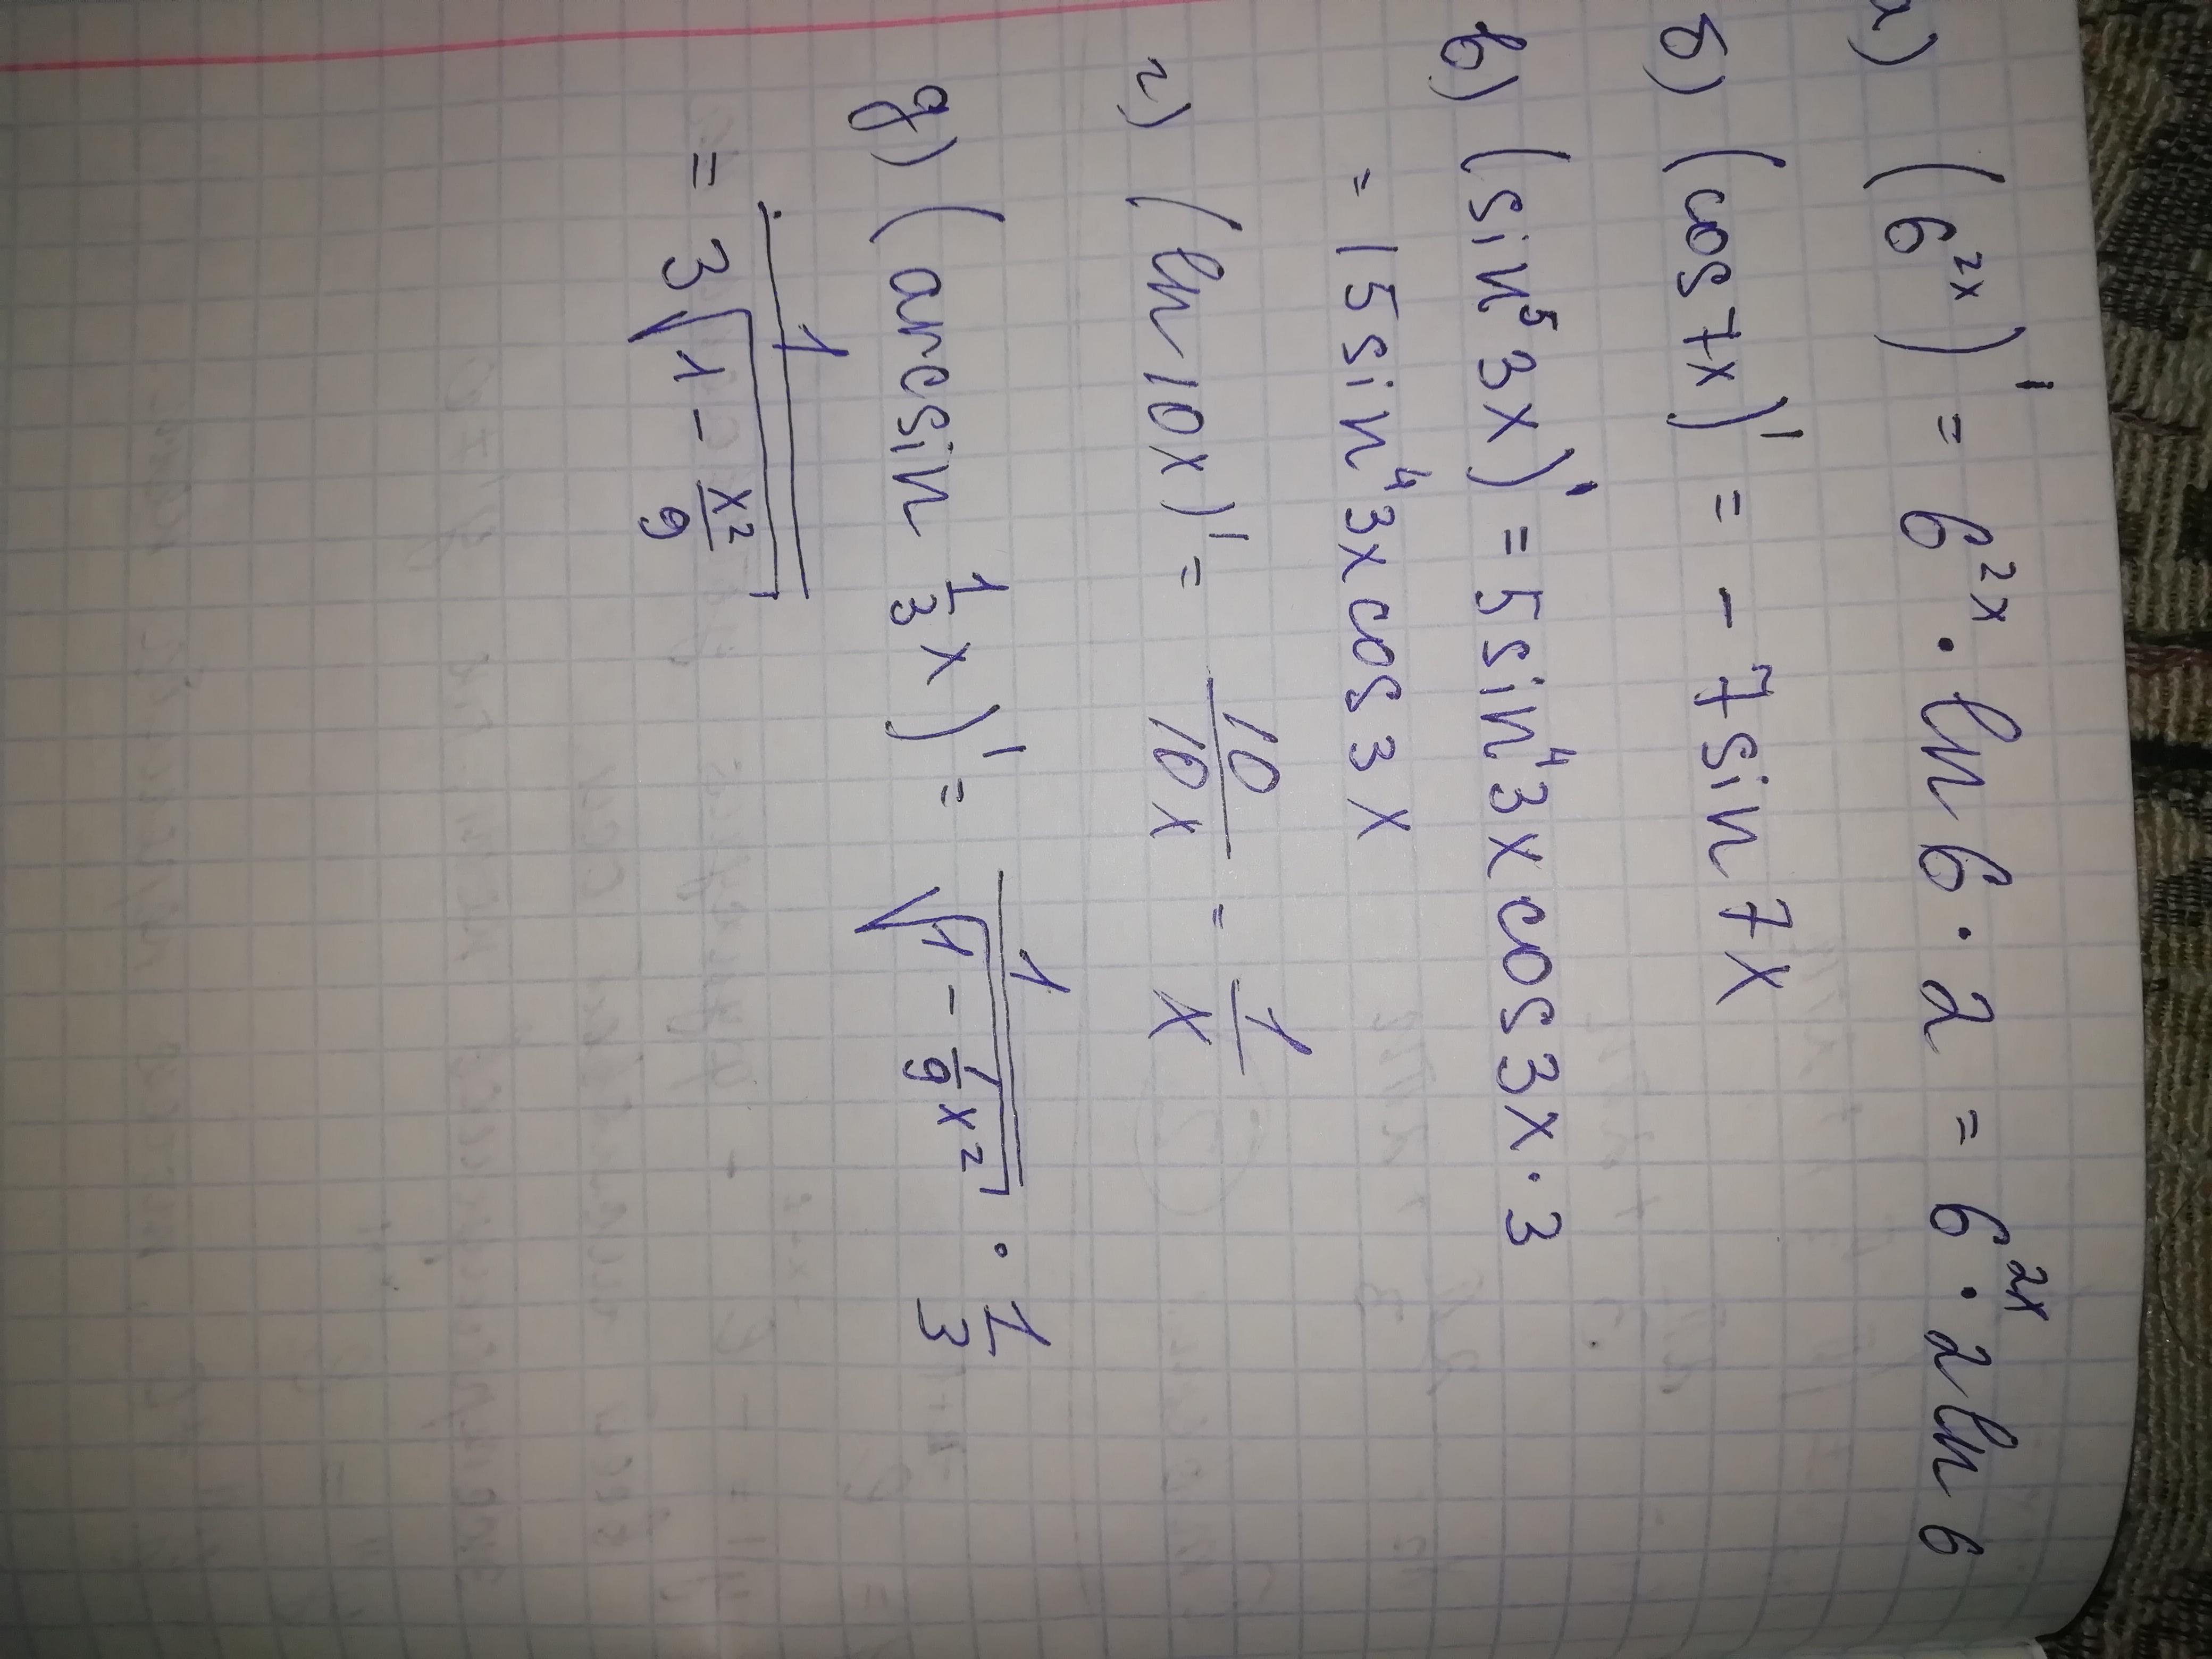 а) (6^{2x})' = 6^{2x} · ln 6 · 2 = 6^{2x} · 2 ln 6
б) (cos 7x)' = - 7 sin 7x
в) (sin^5 3x)' = 5 sin^4 3x cos 3x · 3
= 15 sin^4 3x cos 3x
г) (ln 10x)' = \frac{10}{10x} = \frac{1}{x}
д) (arcsin \frac{1}{3} x)' = \frac{1}{\sqrt{1 - \frac{1}{9} x^2}} · \frac{1}{3}
= \frac{1}{3\sqrt{1 - \frac{x^2}{9}}}